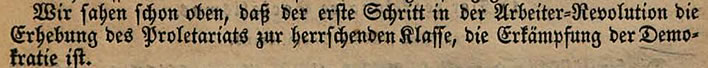 Wir sahen schon oben, daß der erste Schritt in der Arbeiter-Revolution die
Erhebung des Proletariats zur herrschenden Klasse, die Erkämpfung der Demo-
kratie ist.